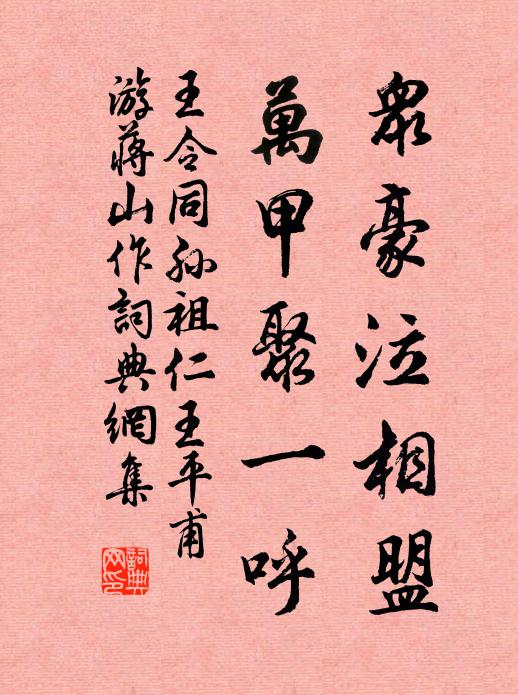 眾豪泣相盟
萬甲聚一呼
王令同孫祖仁王平甫
游蔣山作詞典網集
詞典網印